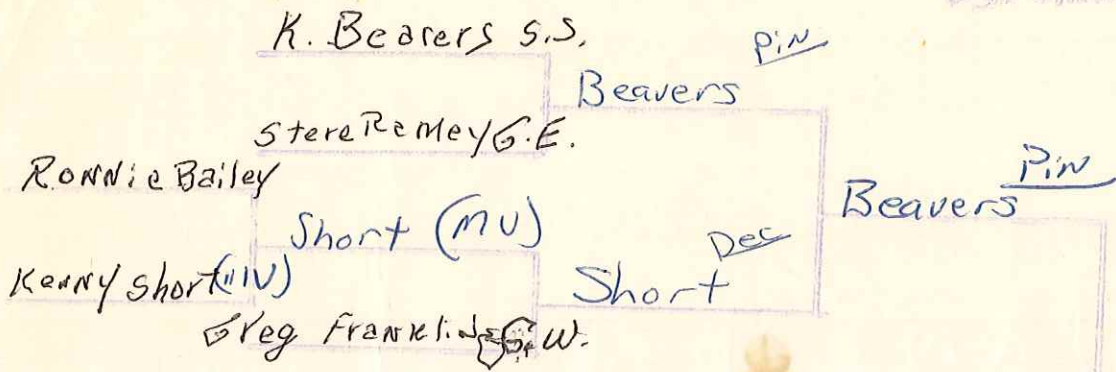 K. Beavers S.S.
Pin
Beavers
Steve Remey G.E.
Ronnie Bailey
Pin
Beavers
Short (MV)
Dec
Kenny Short (MV)
Short
Greg Franklin G.W.